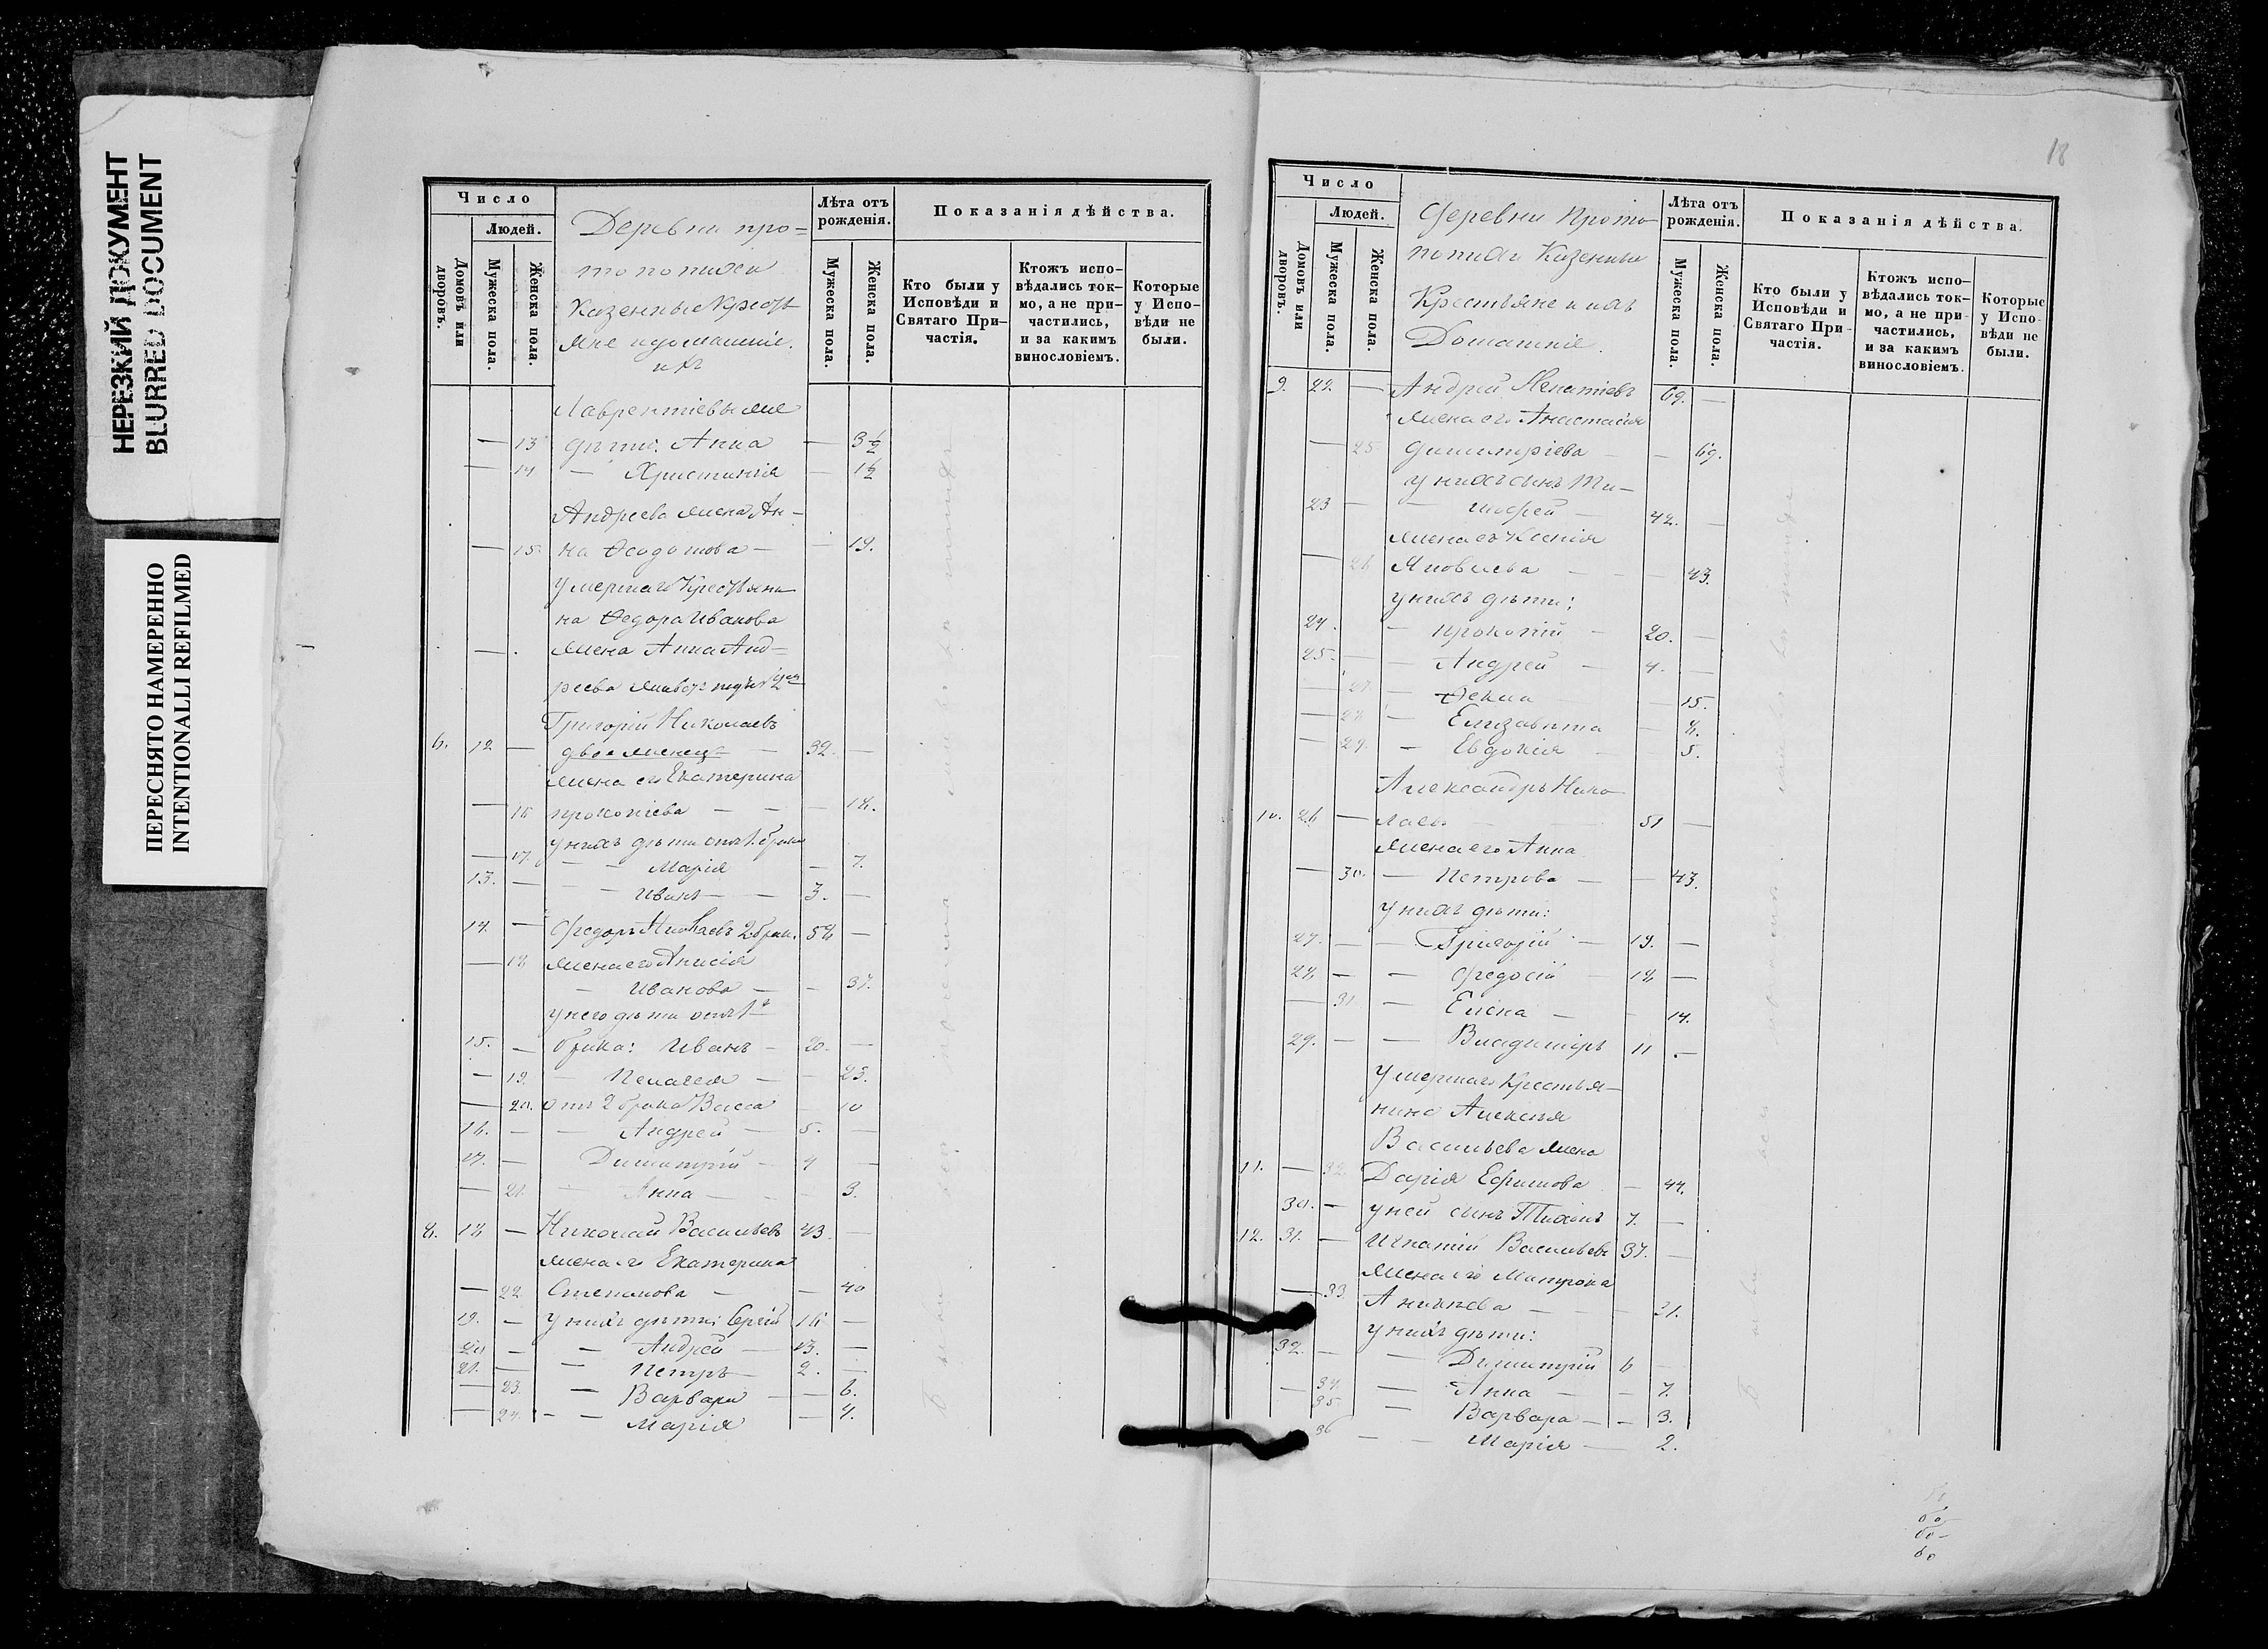 НЕРЕЗКИЙ ДОКУМЕНТ
BLURRED DOCUMENT
ПЕРЕСНЯТО НАМЕРЕННО
INTENTIONALLI REFILMED
Число
Людей.
Домовъ или дворовъ.
Мужеска пола.
Женска пола.
Деревни про=
топопихи
Казенные Крестъ
яне и домашніе.
ихъ
Лѣта отъ
рожденія.
Мужеска пола.
Женска пола.
Показанія дѣйства.
Кто были у
Исповѣди и
Святаго При-
частія.
Ктожъ испо-
вѣдались ток-
мо, а не при-
частились,
и за какимъ
винословіемъ.
Которые
у Испо-
вѣди не
были.
Лаврентіевы
— 13 дѣти: Анна — 3½
— 14 — Христинія — 1½
Андреева жена Ан-
— 15. на Ѳедотова — — 19.
Умершаго Крестьяни
на Ѳедора Иванова
— . жена Анна Анд-
реева
Григорій Николаевъ
6. 12 — двоеженец — 32. —
жена его Екатерина
— 16 прокопіева — — — 18.
у нихъ дѣти отъ 1. брака
— 17. — — Марія — 7.
13. — — — Иванъ — 3. —
14. — Ѳедоръ 2 брак. 58 —
— 18 жена его Анисія
— Иванова — — 37.
у него дѣти отъ 1го
15. — брака: Иванъ — 20. —
— 19. — Пелагея — — 23.
— 20. отъ 2 брака Васса — 10
16. — — Андрей — 5. —
17. — Димитрій — 4 —
— 21. — Анна — — 3.
8. 18 — Николай Васильевъ 43. —
жена его Екатерина
— 22. Степанова — — 40
19. — у нихъ дѣти: Сергій 16 —
20 — — Андрей — 13. —
21. — — Петръ — 2. —
— 23. — Варвара — — 6.
— 24. — — Марія — 4.
18
Число
Людей.
Домовъ или дворовъ.
Мужеска пола.
Женска пола.
Деревни Прото
попихи Казенные
Крестьяне и ихъ
Домашніе.
Лѣта отъ
рожденія.
Мужеска пола.
Женска пола.
Показанія дѣйства.
Кто были у
Исповѣди и
Святаго При-
частія.
Ктожъ испо-
вѣдались ток-
мо, а не при-
частились,
и за какимъ
винословіемъ.
Которые
у Испо-
вѣди не
были.
9. 22. — Андрей Игнатіевъ 69. —
жена его Анастасія
— 25 Димитріева — — 69.
у нихъ сынъ Ти-
23 — — моѳей — 42. —
жена ег Ксенія
— 26 Яковлева — — — 43.
у нихъ дѣти:
24. — прокопій — 20. —
25. — — Андрей — 4. —
— 27. — Ѳекла — 15.
— 28 — Елизавета — 8.
— 29. — Евдокія — 5.
Александръ Нико
10. 26 — лаевъ 51 —
жена его Анна
— 30. — Петрова — — 43.
у нихъ дѣти:
27. — — Григорій — 19. —
28 — — Ѳедосій — 18 —
— 31 — Елена — — 14.
29. — — Владиміръ 11 —
Умершаго Крестья-
нина Алексѣя
Васильева жена
11. — 32. Дарія Ефимова — 44.
30. — у ней сынъ Тихонъ 7. —
12. 31. — Игнатій Васильевъ 37. —
жена его Матрона
— 33. Аникіева — — — 31.
у нихъ дѣти:
32. — — Димитрій 6 —
— 34. — Анна — — 7.
35. — Варвара — — 3.
36 — — Марія — 2.